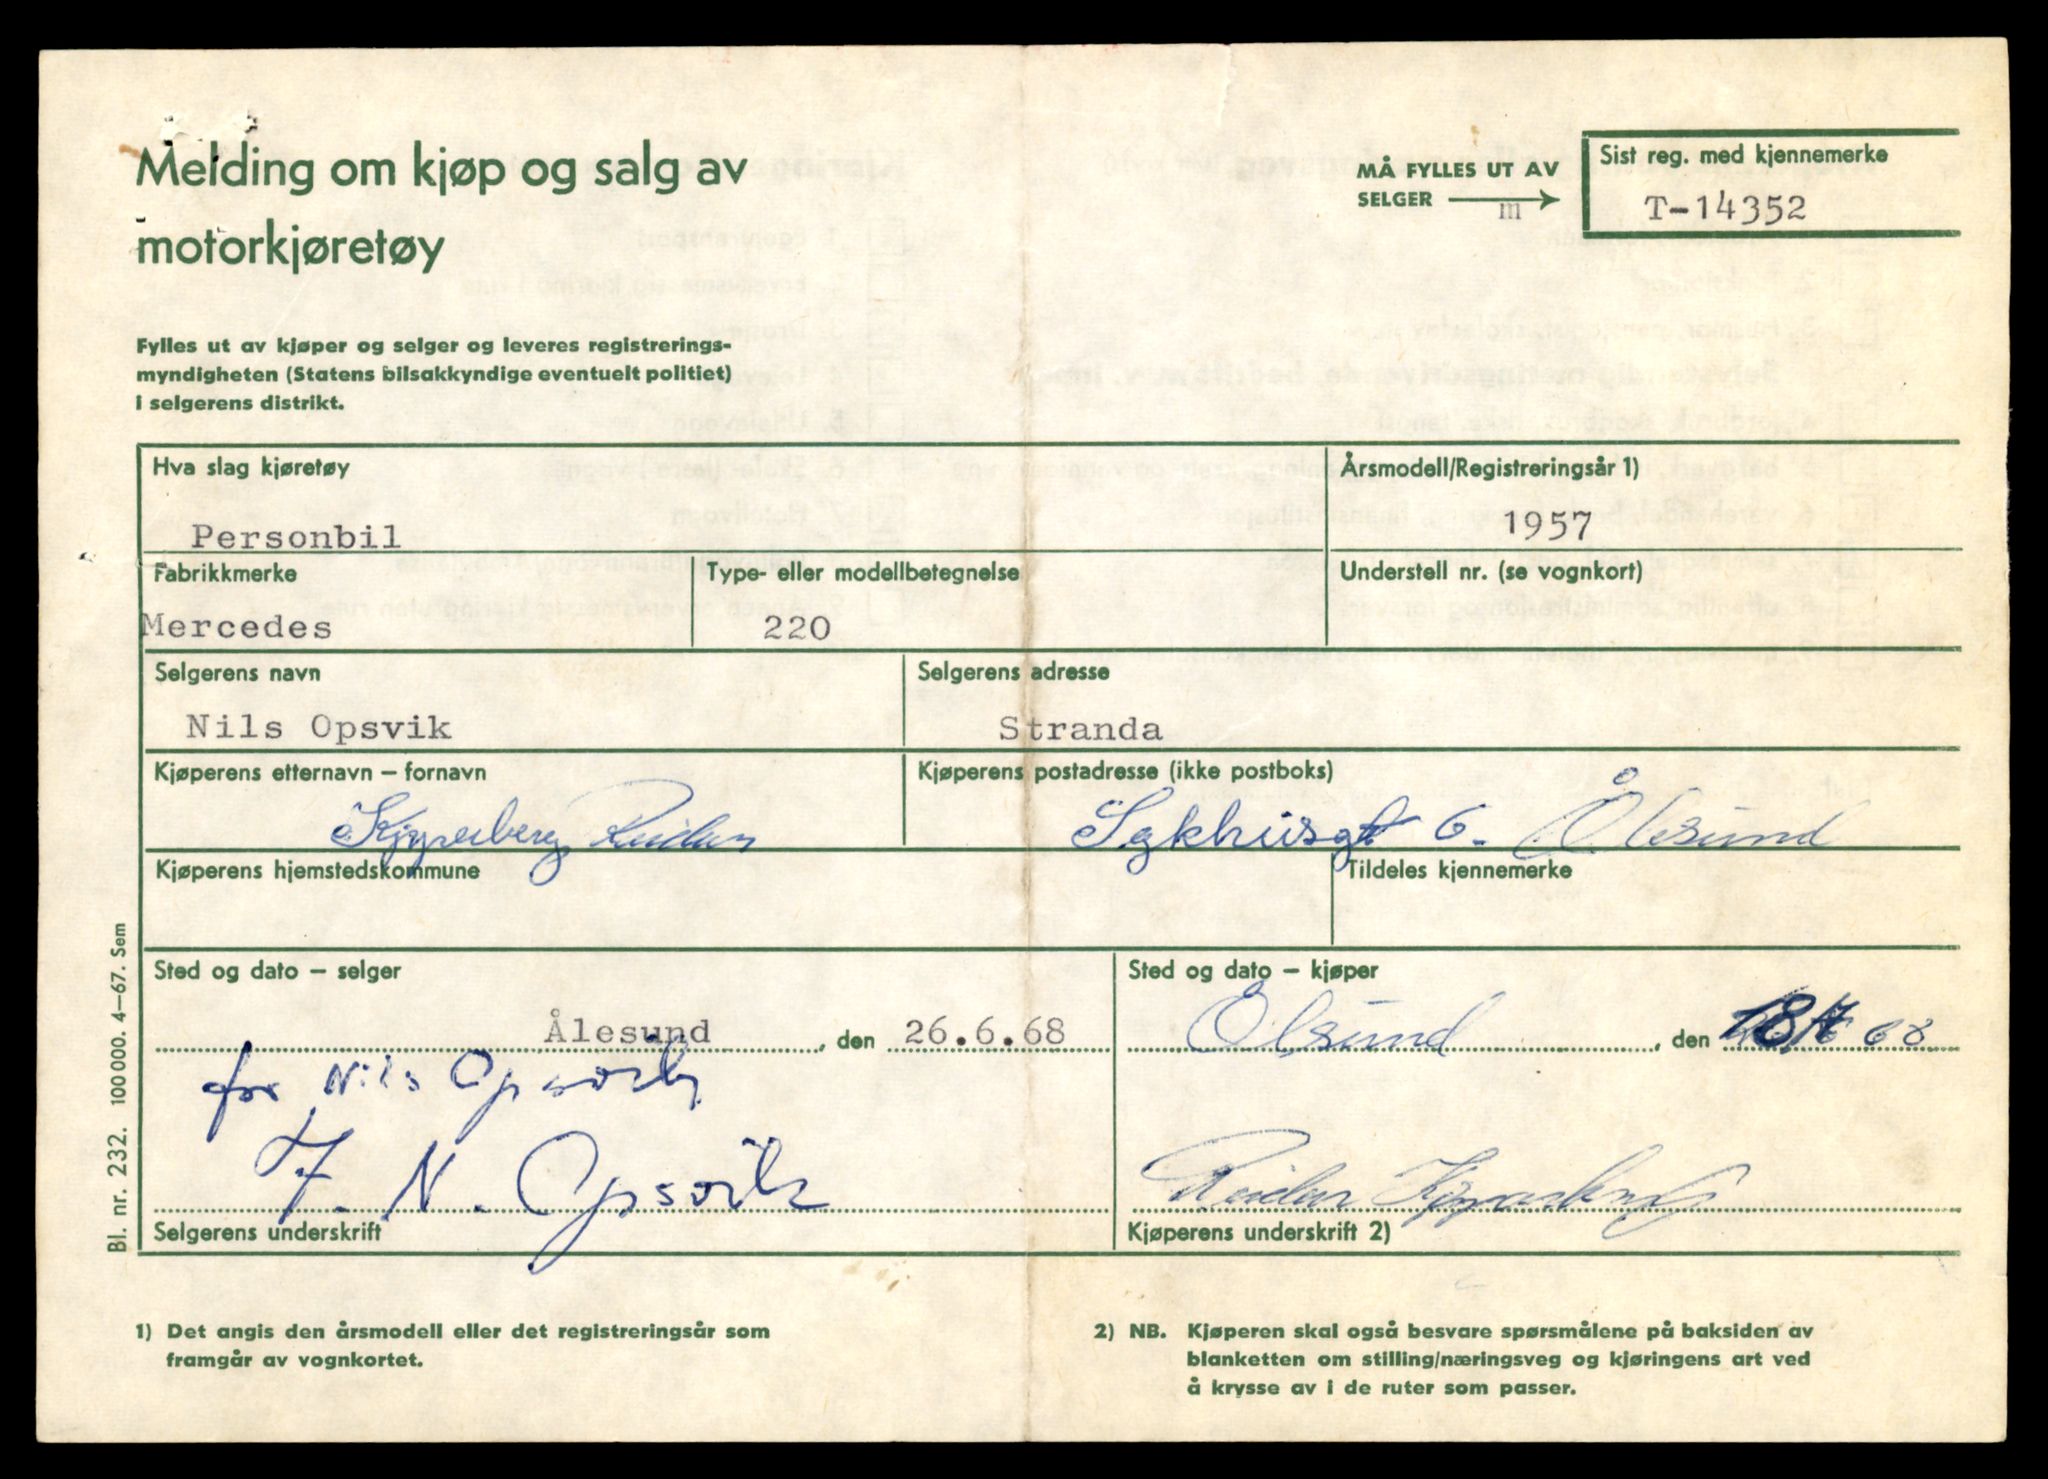 Melding om kjøp og salg av
motorkjøretøy
MÅ FYLLES UT AV
SELGER
m
Sist reg. med kjennemerke
T-14352
Fylles ut av kjøper og selger og leveres registrerings-
myndigheten (Statens bilsakkyndige eventuelt politiet)
i selgerens distrikt.
Hva slag kjøretøy
Personbil
Årsmodell/Registreringsår 1)
1957
Fabrikkmerke
Mercedes
Type- eller modellbetegnelse
220
Understell nr. (se vognkort)
Selgerens navn
Nils Opsvik
Selgerens adresse
Stranda
Kjøperens etternavn – fornavn
Kipperberg Reidar
Kjøperens postadresse (ikke postboks)
Sykhusgt 6. Ålesund
Kjøperens hjemstedskommune
Tildeles kjennemerke
Sted og dato – selger
Ålesund, den 26.6.68
for Nils Opsvik
J. N. Opsvik
Selgerens underskrift
Sted og dato – kjøper
Ålsund, den 68
Reidar Kipperberg
Kjøperens underskrift 2)
Bl. nr. 232. 100 000. 4–67. Sem
1) Det angis den årsmodell eller det registreringsår som
framgår av vognkortet.
2) NB. Kjøperen skal også besvare spørsmålene på baksiden av
blanketten om stilling/næringsveg og kjøringens art ved
å krysse av i de ruter som passer.